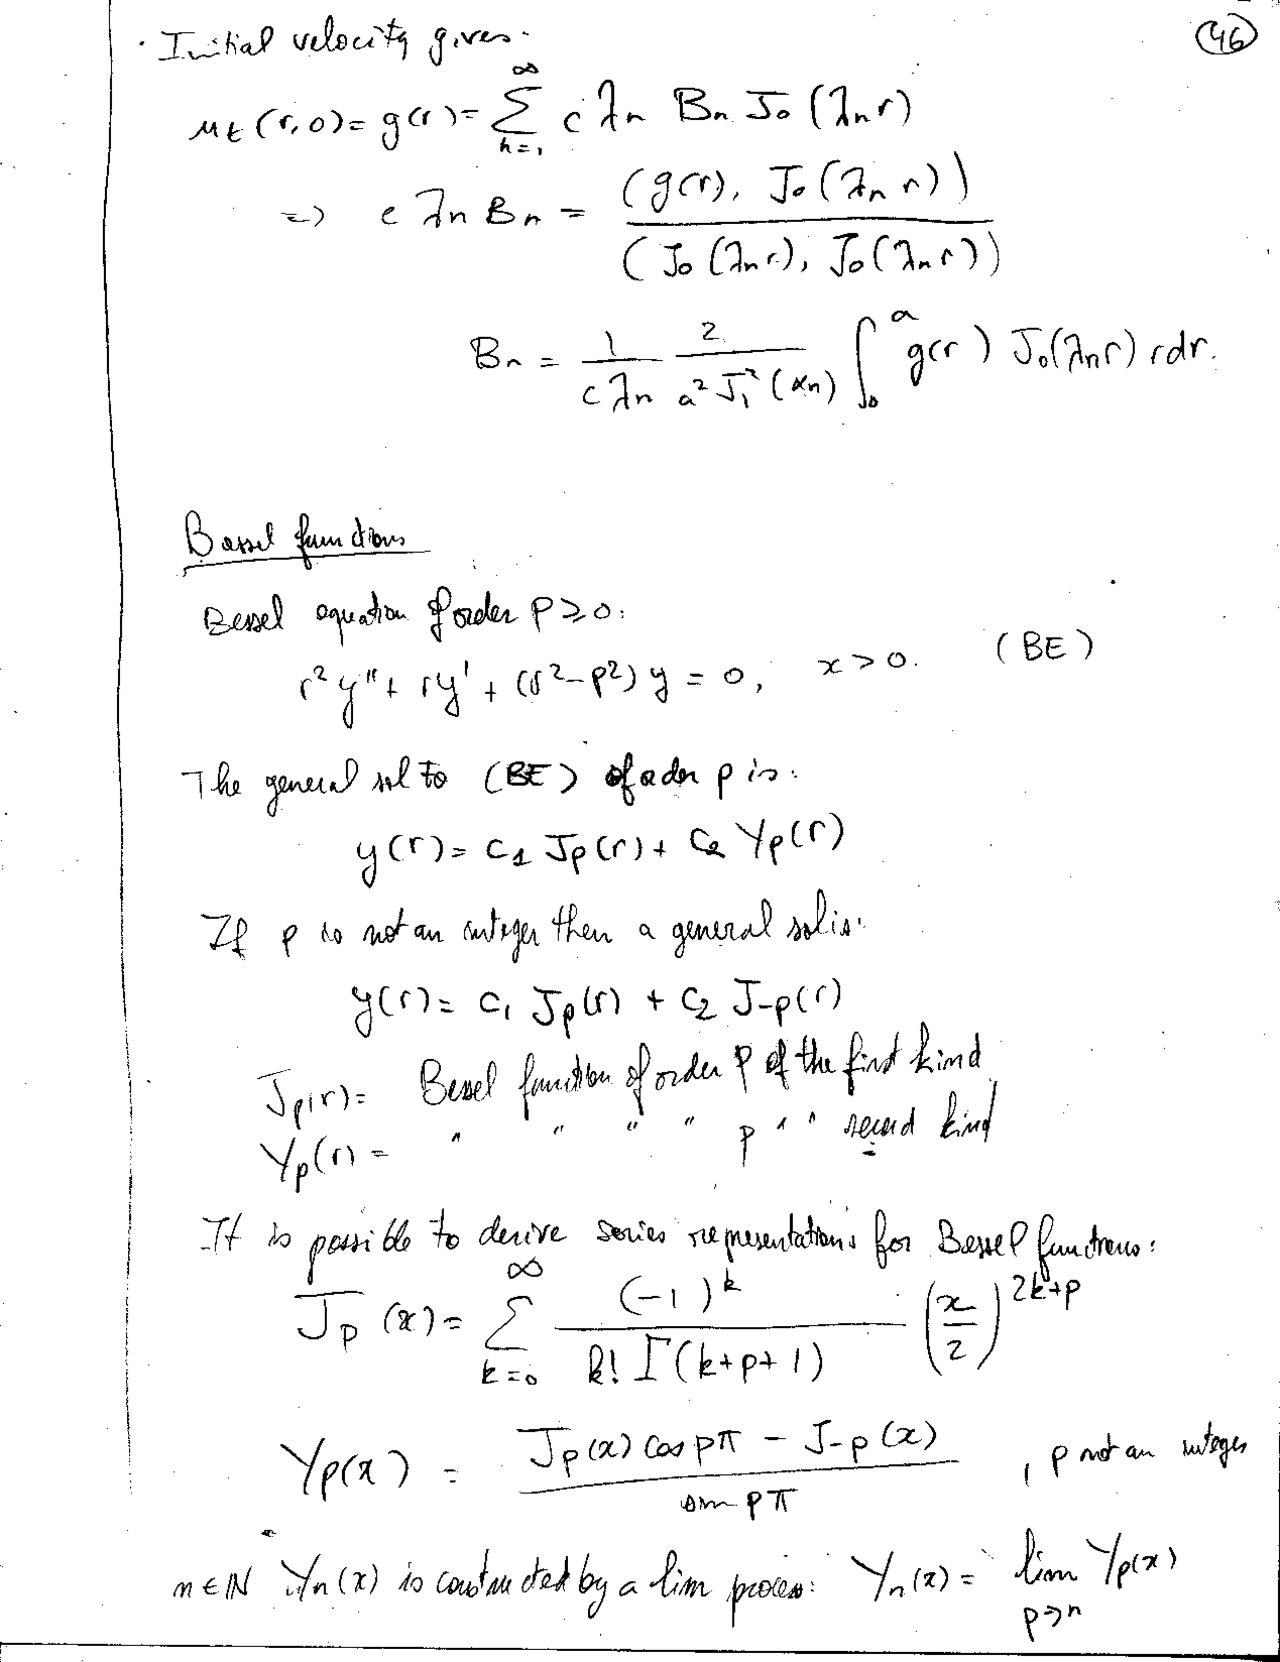 (46)
· Initial velocity gives.
u_t(r,0) = g(r) = ∑_{n=1}^{∞} c λn Bn J₀(λn r)
=> c λn Bn = (g(r), J₀(λn r)) / (J₀(λn r), J₀(λn r))
Bn = 1/(c λn) 2/(a² J₁²(αn)) ∫₀^a g(r) J₀(λn r) r dr.
Bessel functions
Bessel equation of order p ≥ 0:
r² y'' + r y' + (r² - p²) y = 0, x > 0. (BE)
The general sol to (BE) of order p is:
y(r) = c₁ Jp(r) + c₂ Yp(r)
If p is not an integer then a general sol is:
y(r) = c₁ Jp(r) + c₂ J-p(r)
Jp(r) = Bessel function of order p of the first kind
Yp(r) = " " " " p " " second kind
It is possible to derive series representations for Bessel functions:
Jp(x) = ∑_{k=0}^{∞} (-1)^k / (k! Γ(k+p+1)) (x/2)^{2k+p}
Yp(x) = (Jp(x) cos pπ - J-p(x)) / sin pπ , p not an integer
n ∈ ℕ Yn(x) is constructed by a lim process: Yn(x) = lim_{p→n} Yp(x)